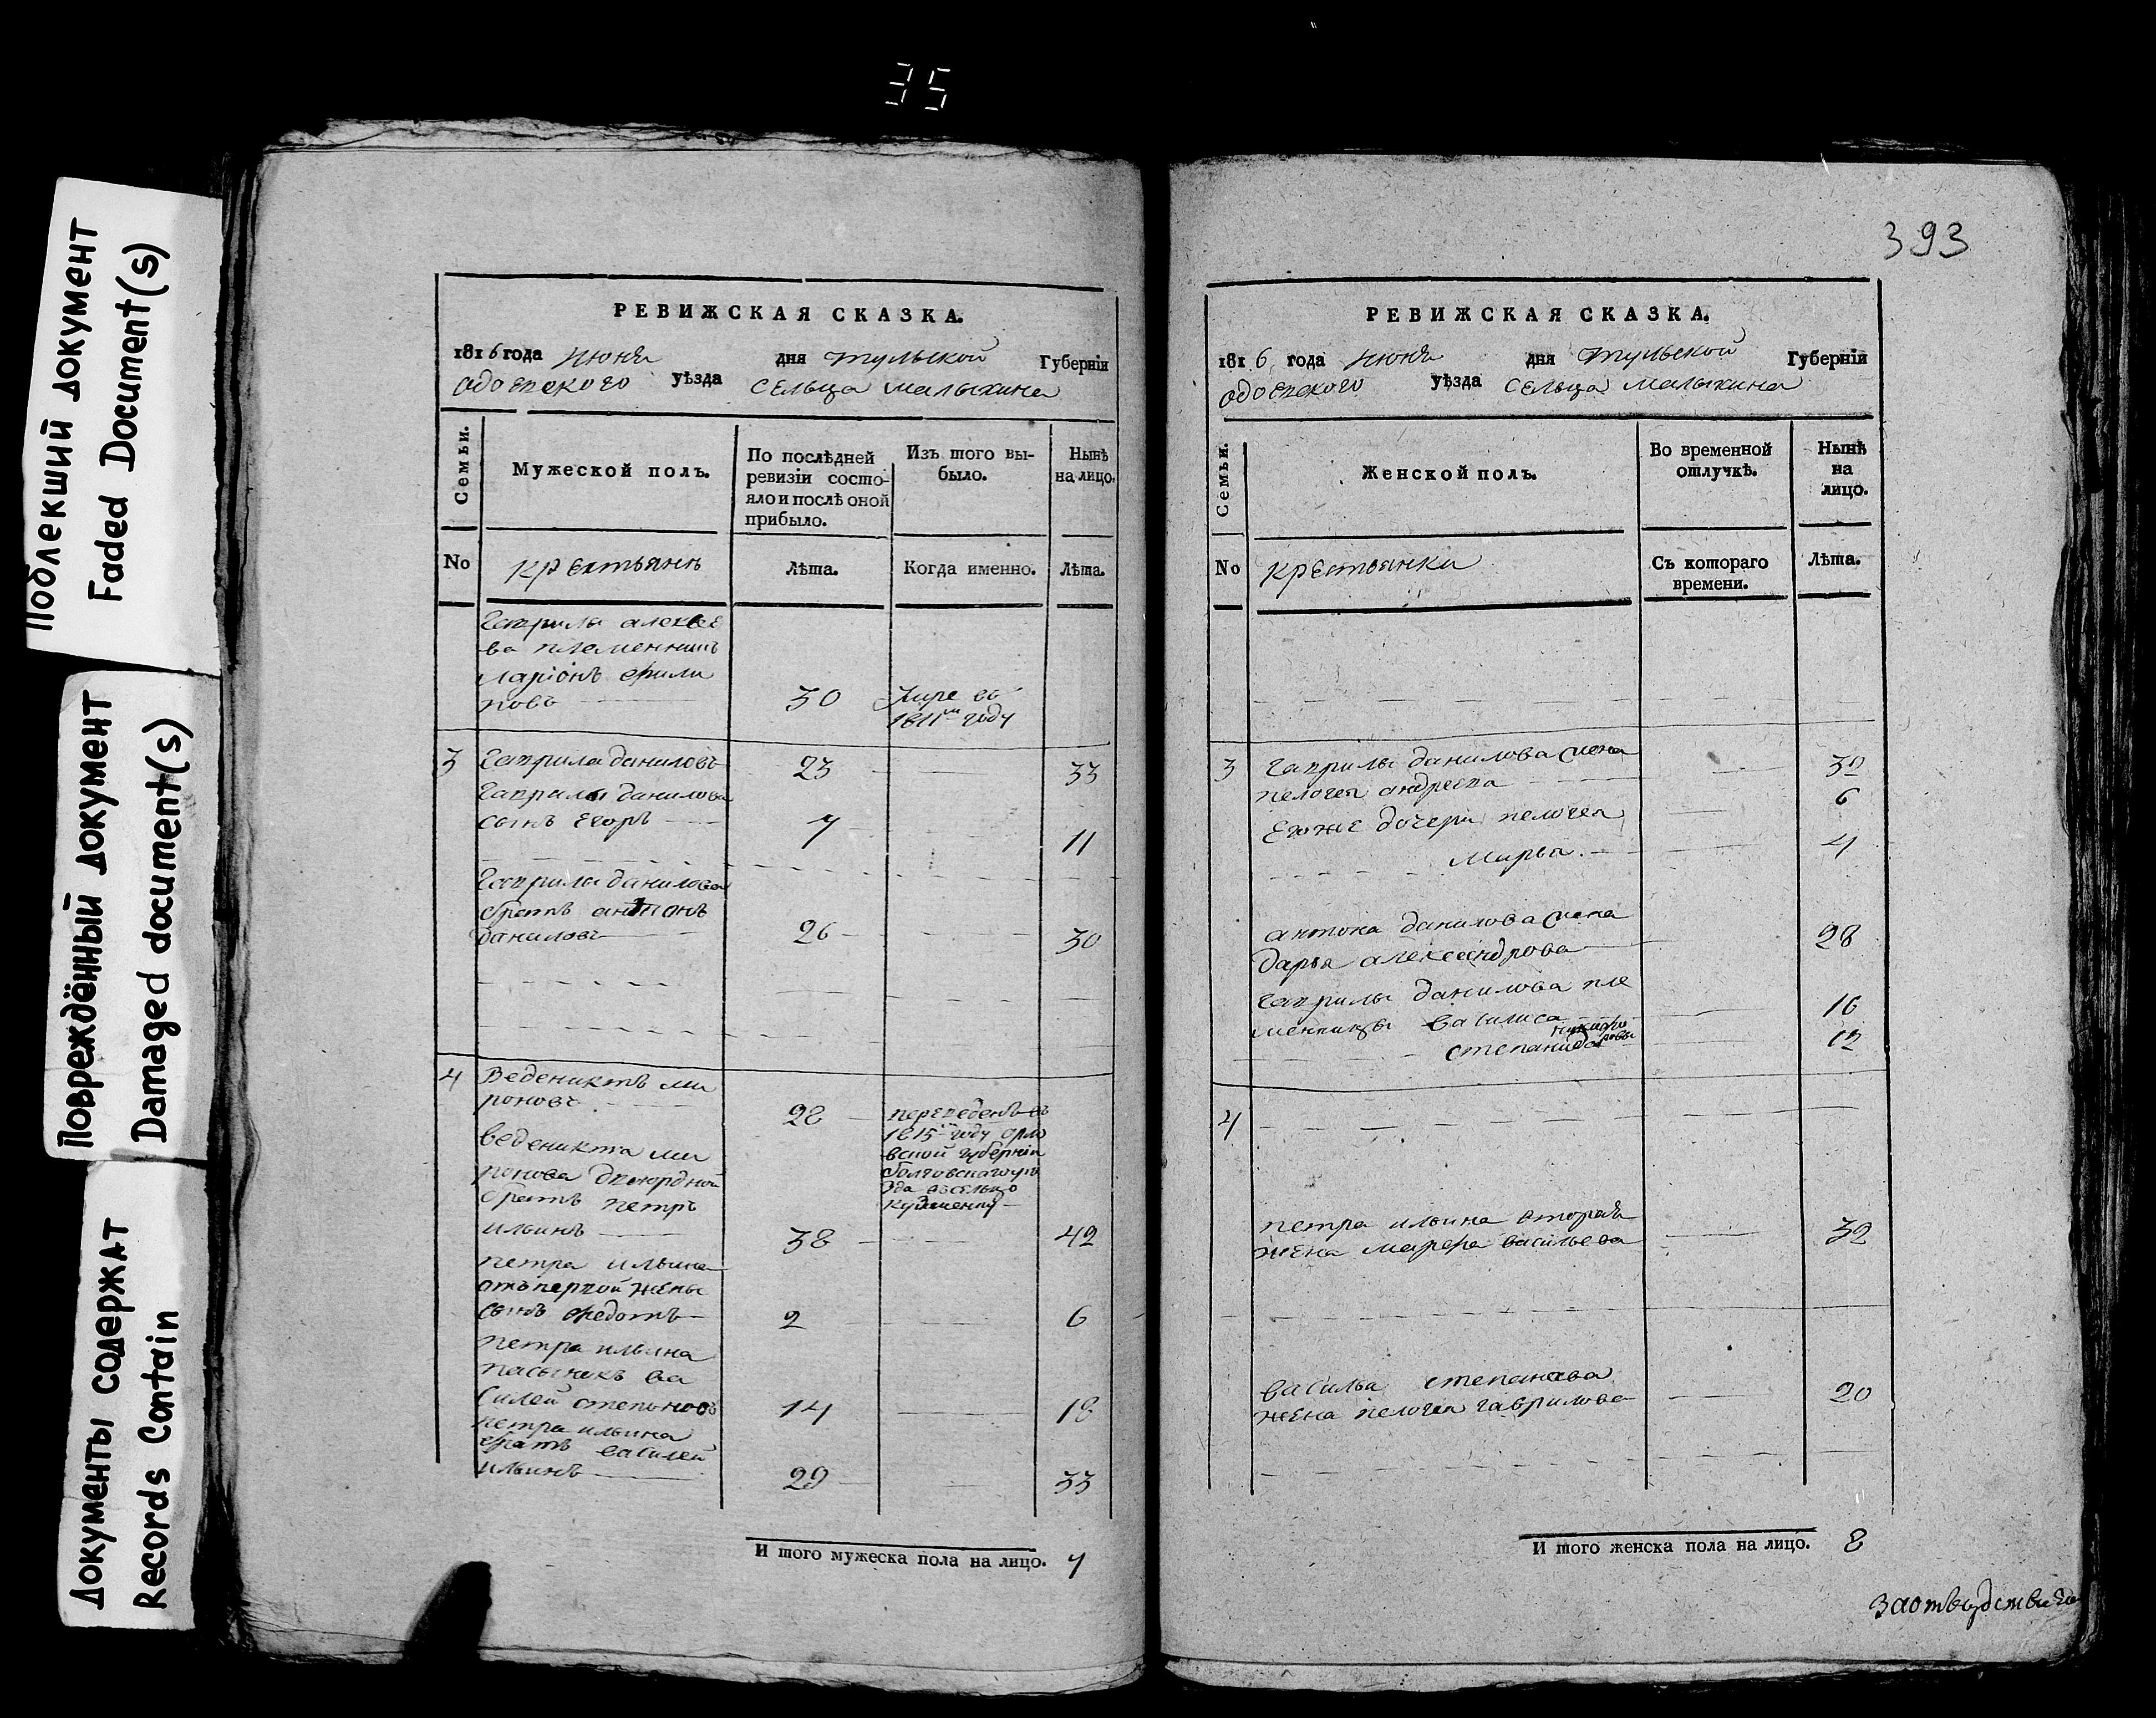 35
Поблекший документ
Faded Document(s)
Повреждённый документ
Damaged document(s)
Документы содержат
Records Contain
РЕВИЖСКАЯ СКАЗКА.
1816 года июня дня тульской Губерніи
одоевского уѣзда сельца малыхина
Семьи.
Мужеской полъ.
По послѣдней
ревизіи состо-
яло и послѣ оной
прибыло.
Изъ того вы-
было.
Нынѣ
на лицо.
No
крестьянѣ
Лѣта.
Когда именно.
Лѣта.
Гаврилы алексѣе
ва племянникъ
ларіонъ фили
повъ 30 Умре въ
1811м году
3 Гаврила даниловъ 23 33
Гаврилы данилова
сынъ Егоръ 7 11
Гаврилы данилова
братъ антонъ
даниловъ 26 30
4 Веденикта ми
роновъ 28 переведенъ въ
1815м году орло
вской губерніи
болховскаго уѣ
зда въ сельцо
веденикта ми
ронова двоюродной
братъ петръ
ильинъ 38 42
петра ильина
отъ первой жены
сынъ федотъ 2 6
петра ильина
пасынокъ ва
силей степановъ 14 18
петра ильина
братъ василей
ильинъ 29 33
И того мужеска пола на лицо. 7
393
РЕВИЖСКАЯ СКАЗКА.
1816 года июня дня тульской Губерніи
одоевского уѣзда сельца малыхина
Семьи.
Женской полъ.
Во временной
отлучкѣ.
Нынѣ
на
лицо.
No
крестьянки
Съ котораго
времени.
Лѣта.
3 Гаврилы данилова жена 32
пелогея андреева
Егожε дочери пелогея 6
марья 4
антона данилова жена
дарья александрова 28
гаврилы данилова пле
менницы василиса 16
никифо
ровы
степанида 12
4
петра ильина вторая
жена марфа васильева 32
василья степанова
жена пелогея гаврилова 20
И того женска пола на лицо. 8